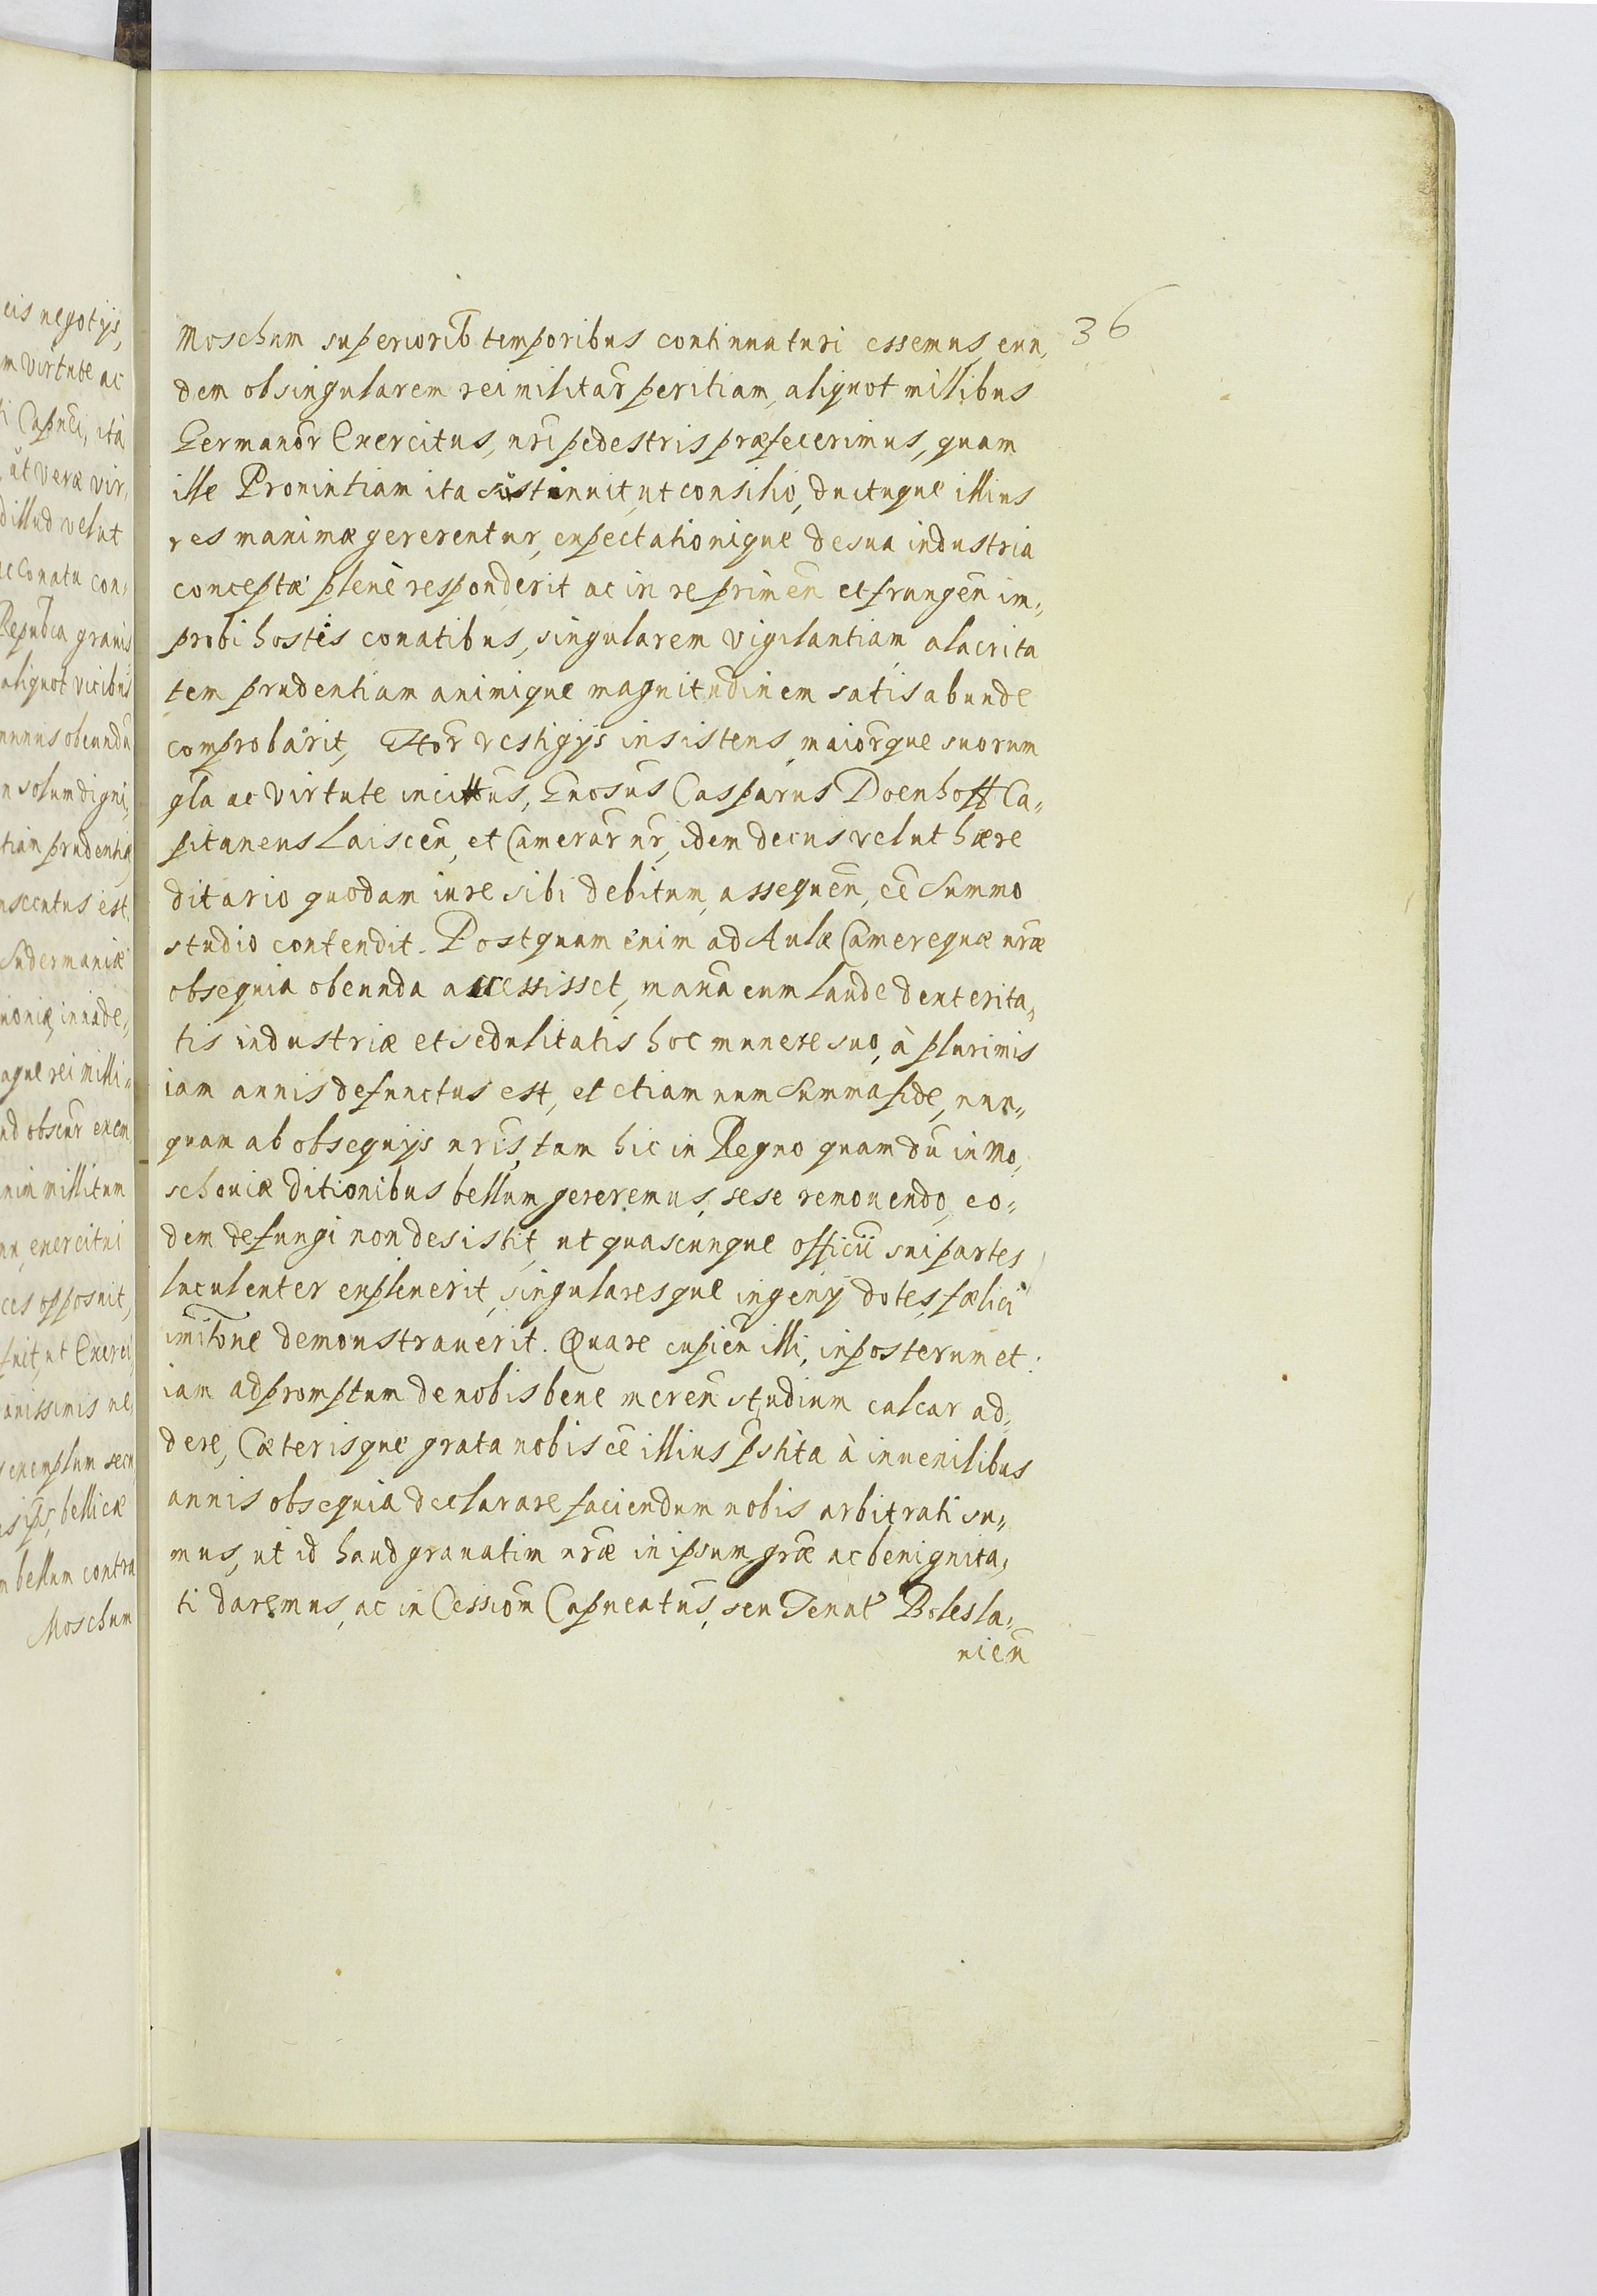 eis negotijs,
m virtute ac
i Capnei, ità
ut veræ vir,
dillud velut
ac Conatu con,
Repubca grauis
aliquot vicibus
munus obeundū
n solum digni,
tiam prudentia
nsecutus est.
Sudermaniæ
moniæ, inuade,
aque rei milli,
ud obscur exem
nim millitum
exercitui
ces opposuit,
fuit, ut Exerci,
anissimis ne,
exemplum secu
bellicæ
m bellum contra
Moschum
36
Moschum superiorib temporibus continuaturi essemus, eun,
dem ob singularem rei militar̄ peritiam, aliquot millibus
Germanor̄ Exercitus, nr̄i pedestris præfecerimus, quam
ille Prouintiam ita sustinuit, ut consilio, ductuque illius
res maximæ gererentur, expectationique de sua industria
conceptæ plenè responderit ac in reprimen̄ et frangen̄ im,
probi hostis conatibus, singularem vigilantiam, alacrita
tem prudentiam animique magnitudinem satis abunde
comprobârit, Hor̄ vestigijs insistens, maior̄que suorum
gl̄a ac virtute incittus, Gnosus Casparus Doenhoff Ca,
pitaneus Laiscen̄, et Camerar̄ nr̄, idem decus velut hære
ditario quodam iure sibi debitum, assequen̄, eē Summo
studio contendit. Postquam enim ad Aulæ Camerequæ nr̄æ
obsequia obeunda accessisset, maxā cum laude dexterita,
tis industriæ et sedulitatis hoc munere suo, à plurimis
iam annis defunctus est, et etiam num Summa fide, nun,
quam ab obsequijs nr̄is, tam hic in Regno quam dū in Mo,
schouiæ ditionibus bellum gereremus, sese remouendo, eo,
dem defungi non desistit, ut quascunque officii sui partes
luculenter expleuerit, singularesque ingenÿ dotes, fælici
imitōne demonstrauerit. Quare cupien̄ illi, inposterum et:
iam ad promptum de nobis bene meren̄ studium calcar ad,
dere, Cæterisque grata nobis eē illius p̄stita à iuuenilibus
annis obsequia declarare faciendum nobis arbitrati su,
mus, ut id haud grauatim nr̄æ in ipsum gr̄æ ac benignita,
ti daremus, ac in Cessiōm Capneatūs, seu Tenut Bolesla,
uien̄